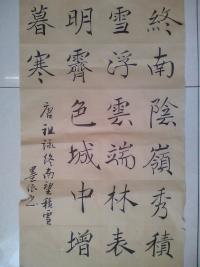 終南陰嶺秀積
雪浮雲端林表
明霽色城中增
暮寒
唐祖詠終南望積雪
墨